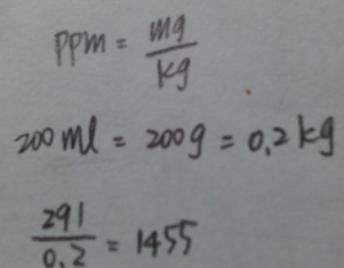 PPM = mg/kg
200ml = 200g = 0.2kg
291/0.2 = 1455